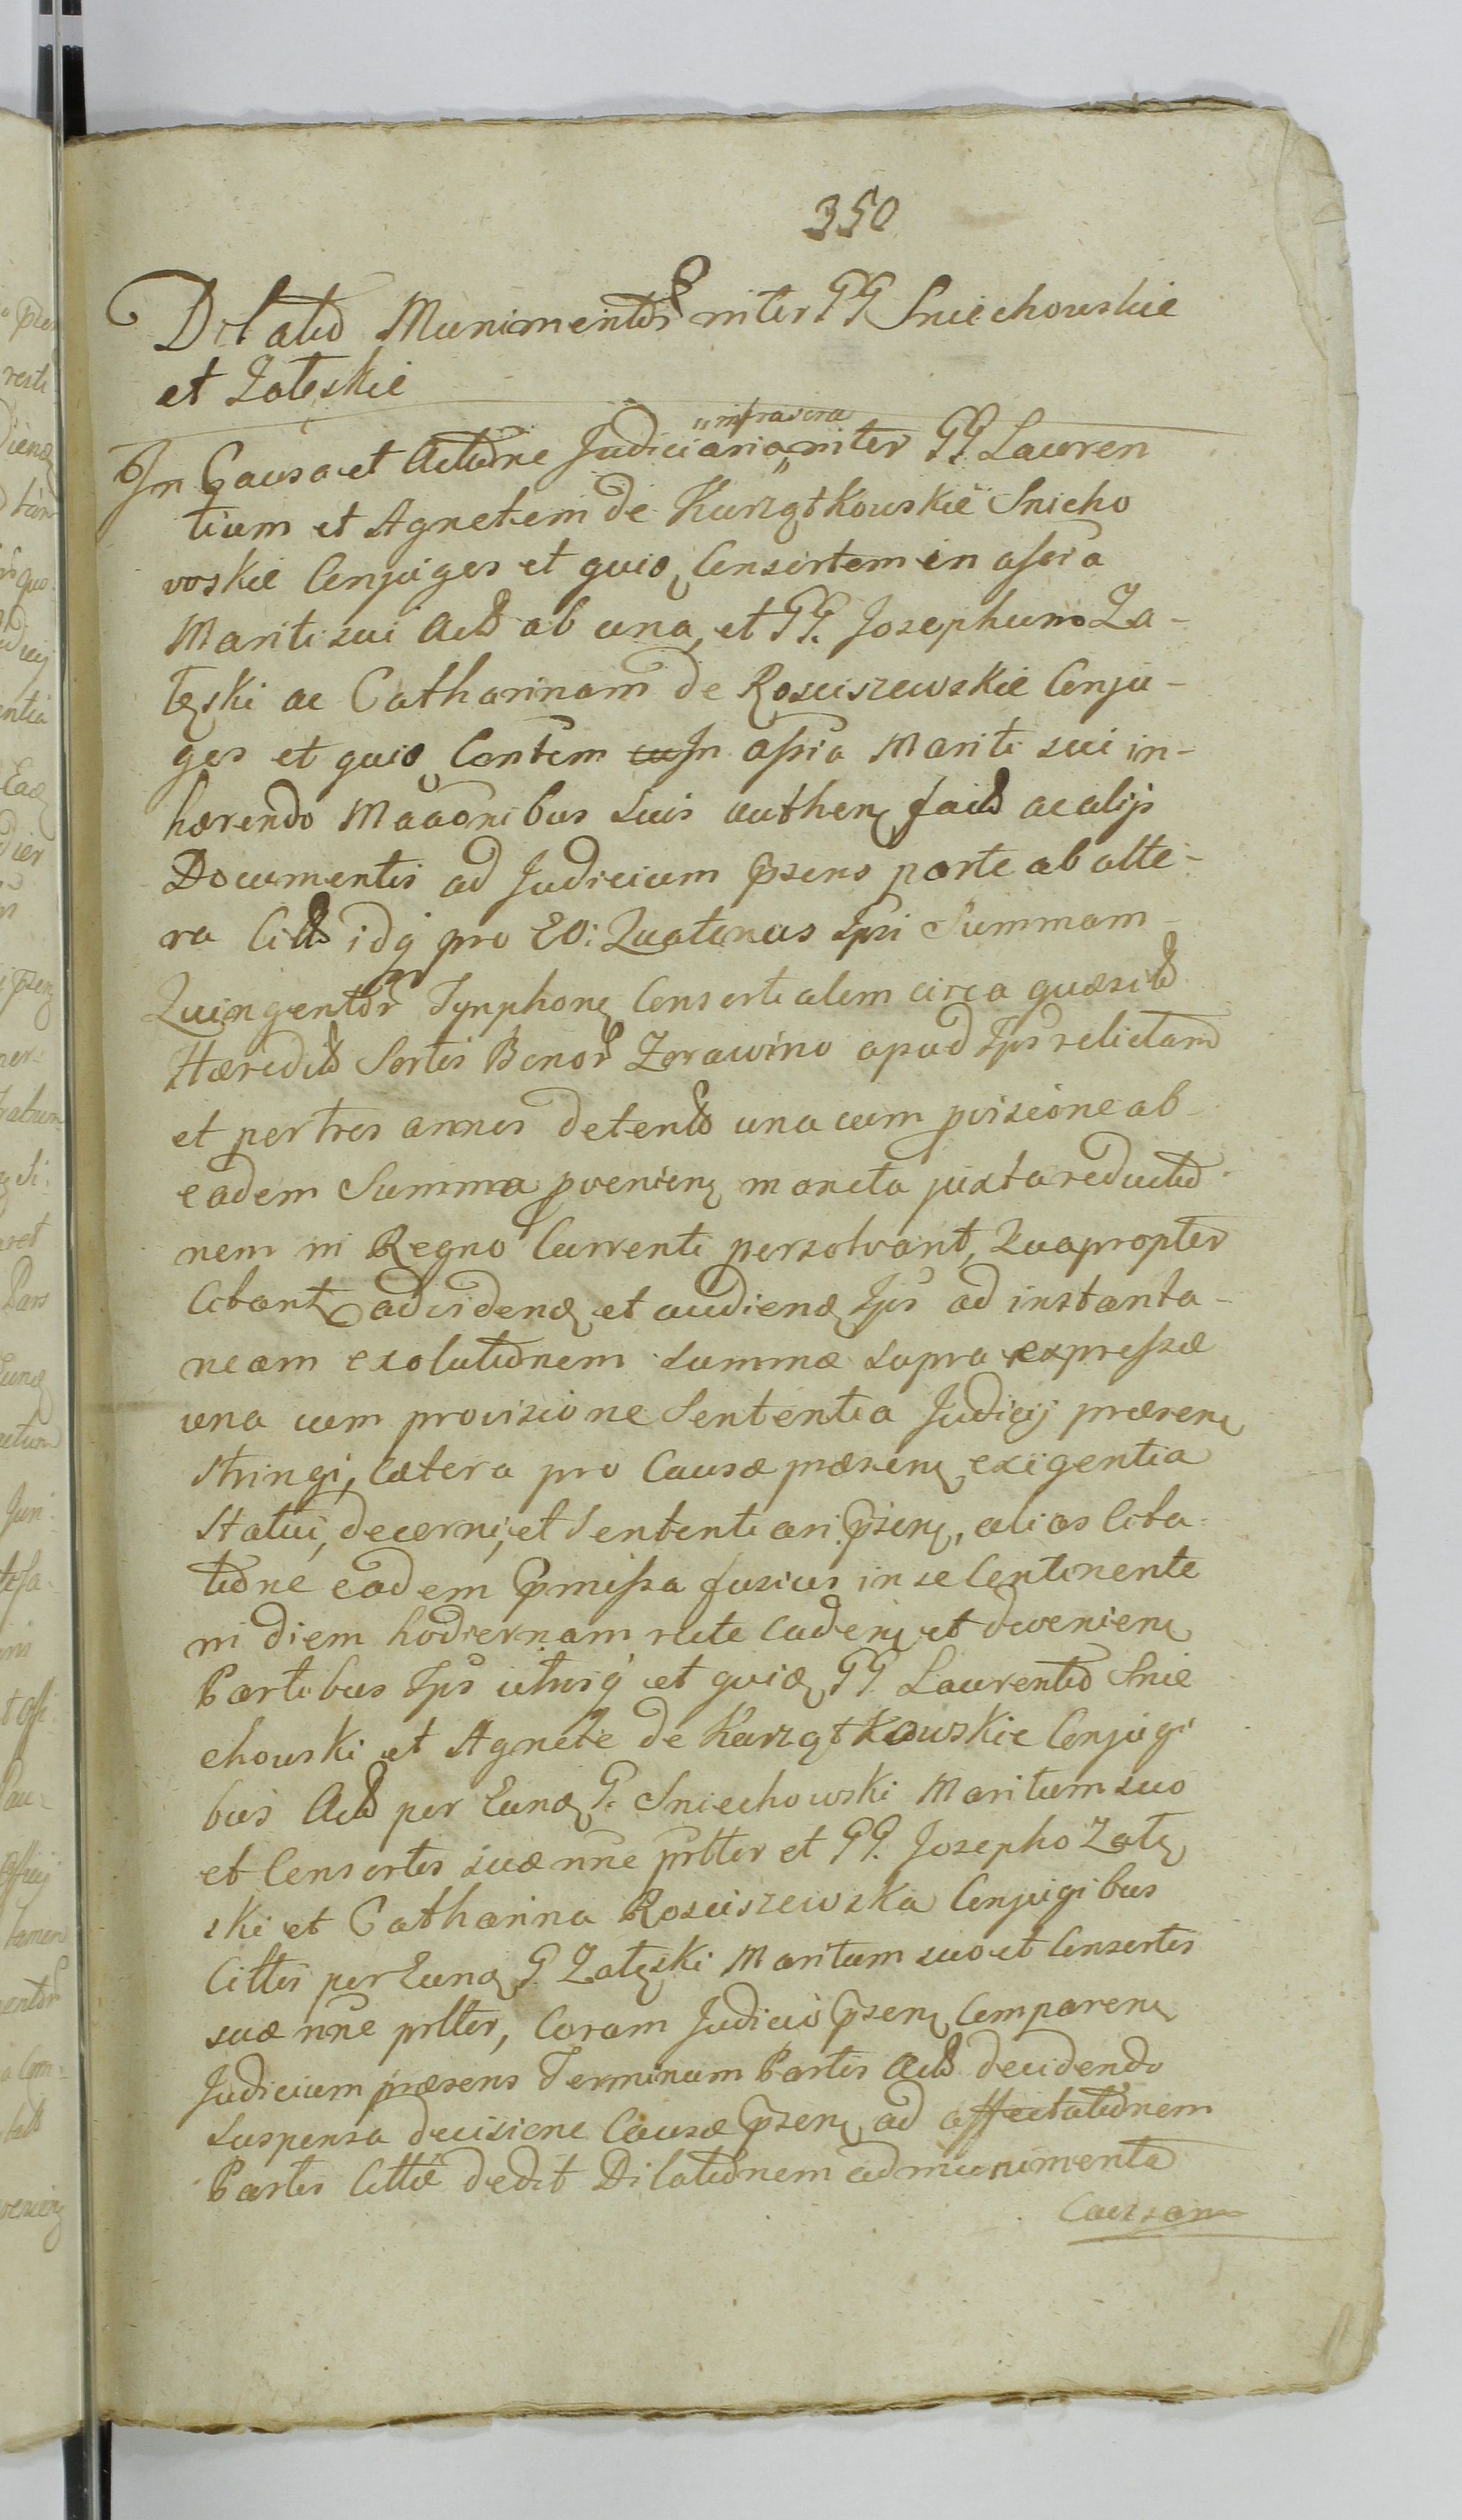 350
Dilatio Munimentor inter GG Sniechowskie
et Załęskie
In Causa et Actione Judiciaria „infrascra inter GG Lauren
tium et Agnetem de Kurzątkowskie Snicho
woskie Conjuges et quid Consortem in assia
Mariti sui Act ab una, et GG. Josephum Za-
łęski ac Catharinam de Rosciszewskie Conju-
ges et quid Contem In assia Mariti sui in-
hærendo Maaonibus suis authen fact ac alijs
Documentis ad Judicium Psens parte ab alte-
ra Citt idq pro Eo: Quatenus Ipsi Summam
Quingentor Tynphon Consortialem circa quæsit
Hæredit Sortis Bonor Zorawino apud Ips relictam
et per tres annos detent una cum pvisione ab
eadem Summa pvenien moneta juxta reductio
nem in Regno Currenti persolvant, Quapropter
Citant ad videnđ et audienđ Ips ad instanta-
neam exolutionem summæ supra expressæ
una cum provisione Sententia Judicij præsen
stringi, Cætera pro Causæ præsen exigentia
Statui, decerni, et Sententiari Psen, alias Cita-
tione eadem Pmissa fusius in se Continente
in diem hodiernam recte Caden et devenien
Partibus Ips utrisq et quid GG. Laurentio Snie
chowski et Agnete de Kurzątkowskie Conjugi
bus Act per Eund G. Sniechowski Maritum suo
et Consortis suæ nne prltter et GG. Josepho Załę
ski et Catharina Rosciszewska Conjugibus
Cittis per Eund G. Załęski Maritum suo et Consortis
suæ nne prltter, Coram Judicio Psen Comparen
Judicium præsens Terminum Partis Act decidendo
Suspensa decisione Causæ Psen ad affectationem
Partis Cittæ dedit Dilationem ad munimenta
Causam